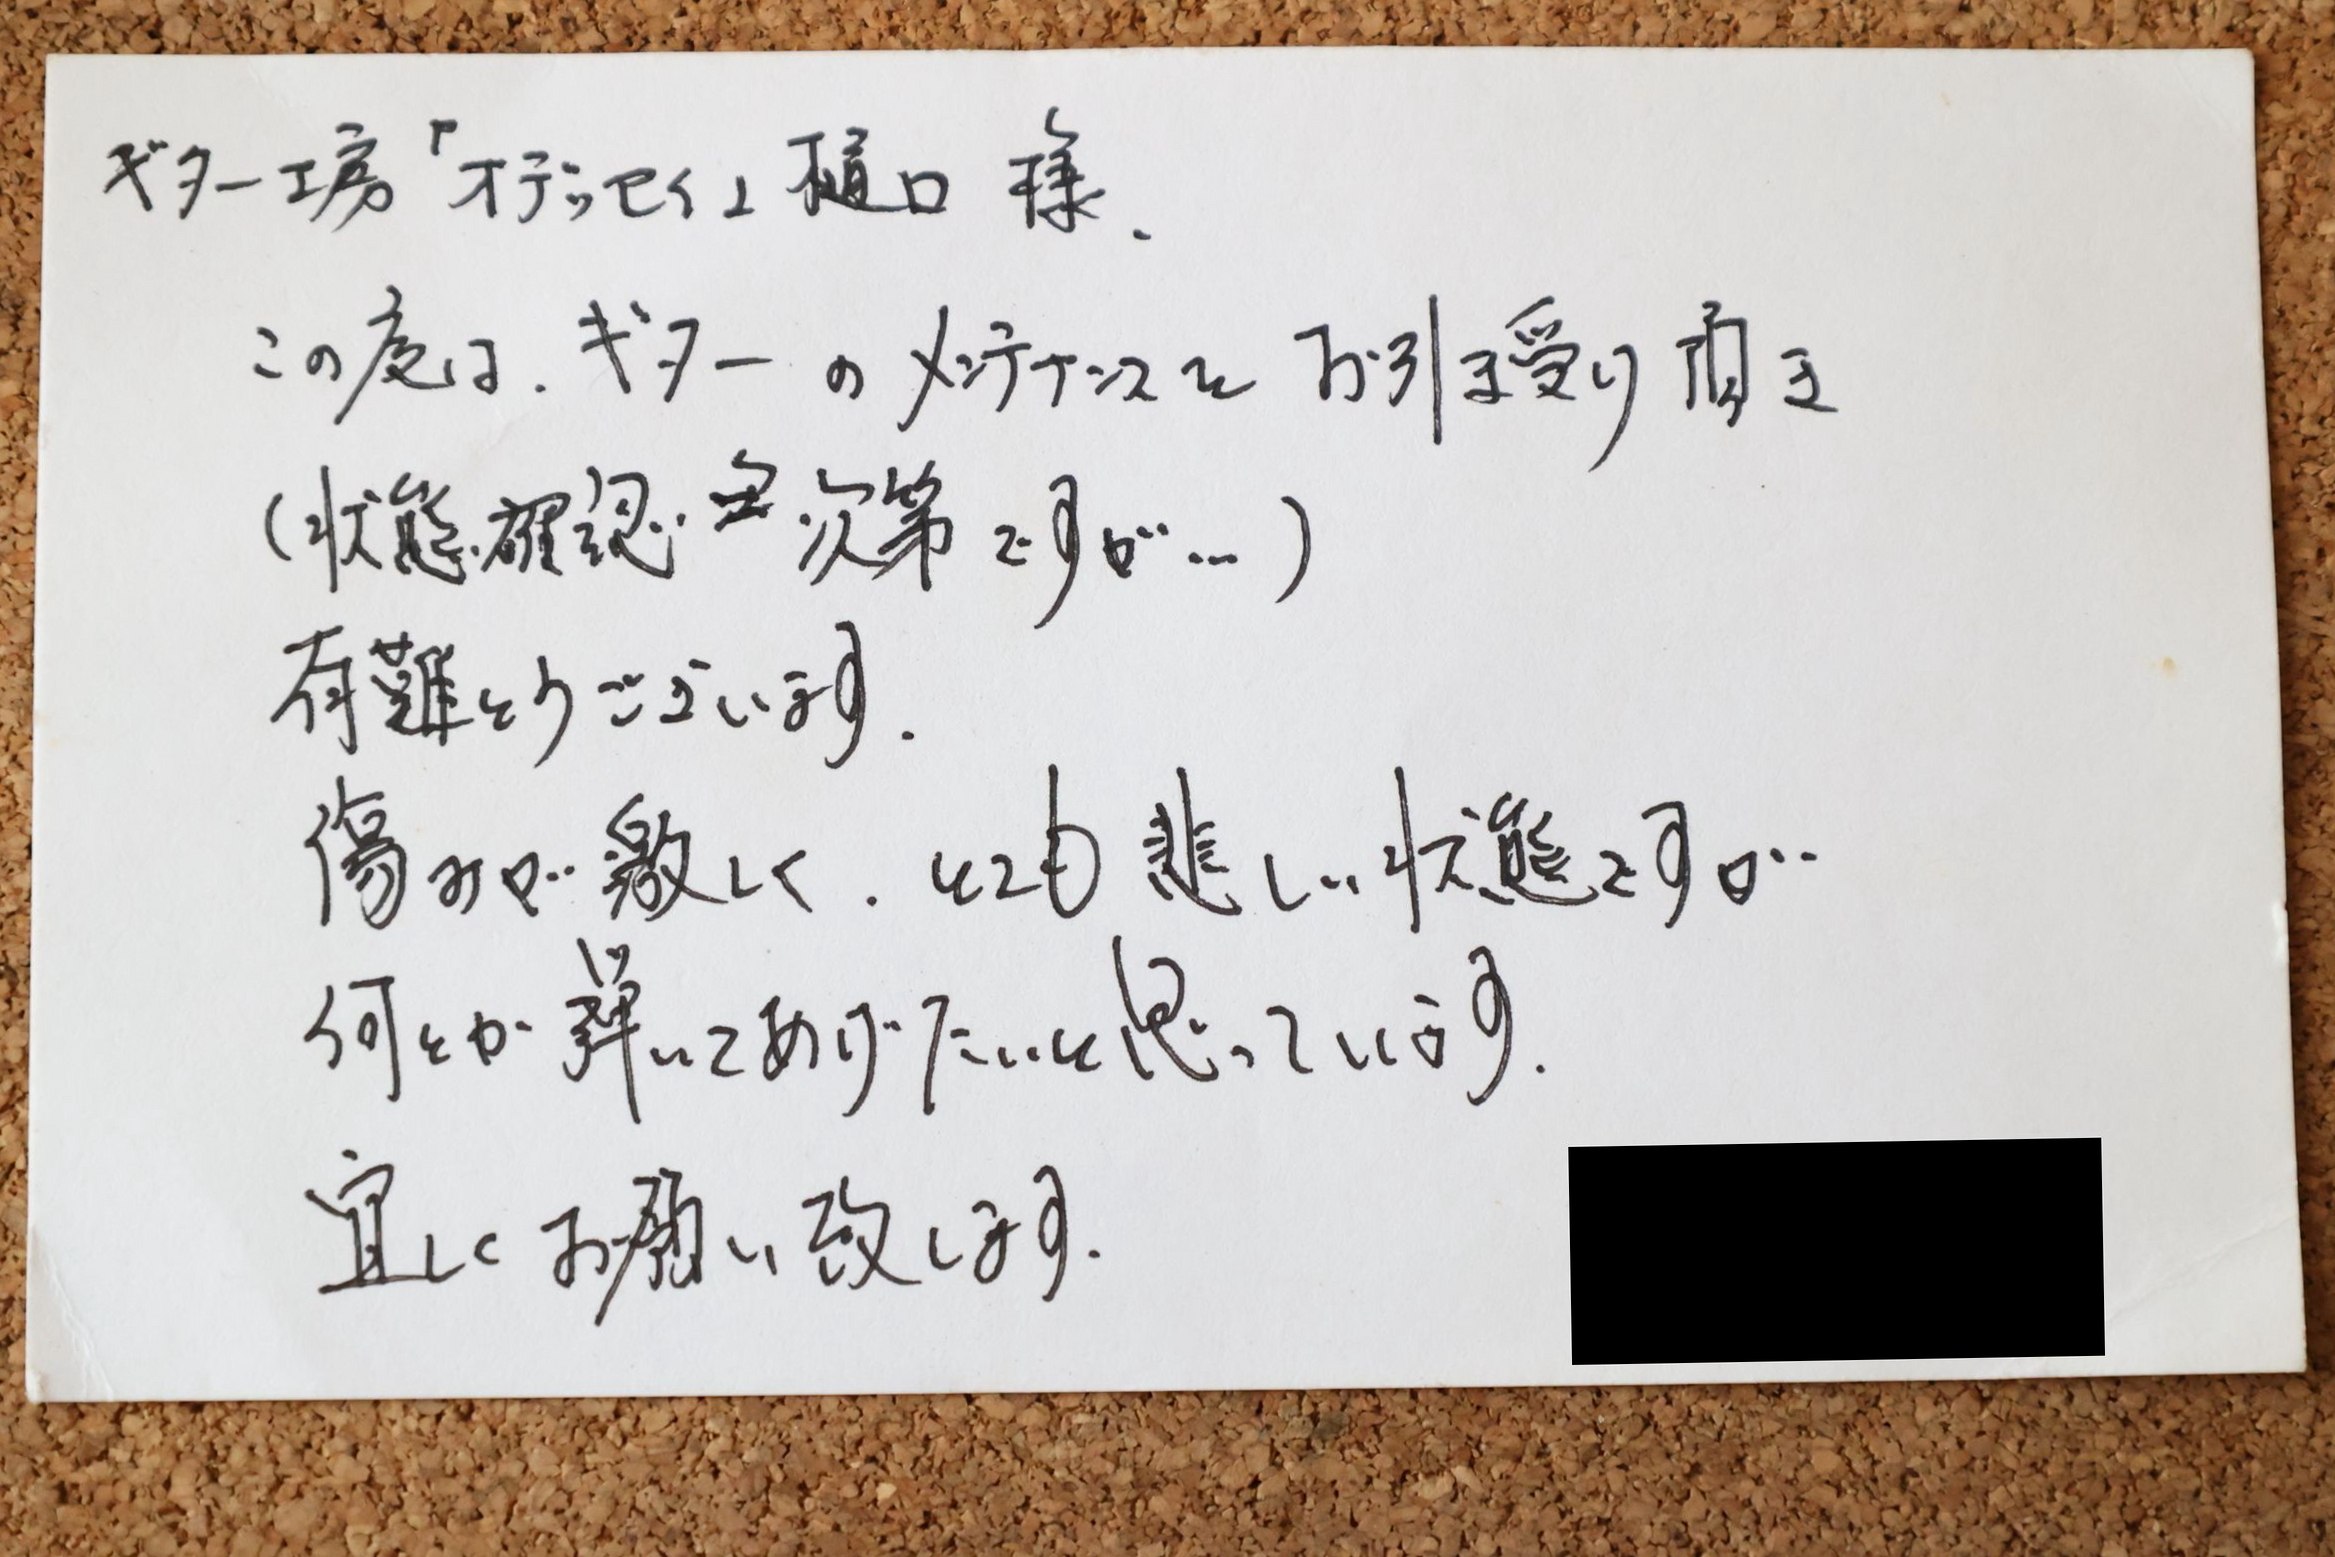 ギター工房「オデッセイ」樋口 様.
この度は、ギターのメンテナンスをお引き受け頂き
(状態確認 次第ですが…)
有難とうございます.
傷みが激しく、とても悲しい状態ですが…
何とか弾いてあげたいと思っています.
宜しくお願い致します.